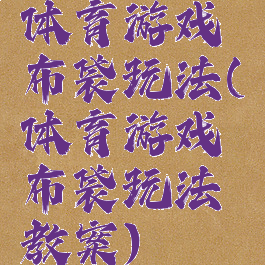 体育游戏
布袋玩法(
体育游戏
布袋玩法
教案)